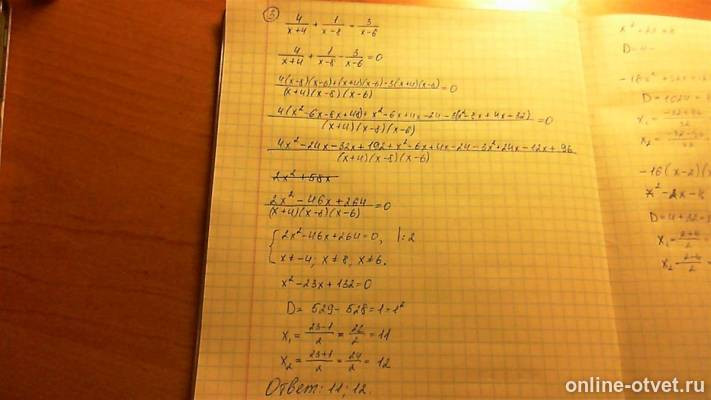 3) 4/(x+4) + 1/(x-8) = 3/(x-6)
4/(x+4) + 1/(x-8) - 3/(x-6) = 0
4(x-8)(x-6)+(x+4)(x-6)-3(x+4)(x-8)/(x+4)(x-8)(x-6) = 0
4(x²-6x-8x+48)+x²-6x+4x-24-3(x²-8x+4x-32)/(x+4)(x-8)(x-6) = 0
4x²-24x-32x+192+x²-6x+4x-24-3x²+24x-12x+96/(x+4)(x-8)(x-6)
2x²+58x
2x²-46x+264/(x+4)(x-8)(x-6) = 0
{ 2x²-46x+264=0, |:2
x≠-4; x≠8, x≠6.
x²-23x+132=0
D= 529-528=1=1²
x₁= (23-1)/2 = 22/2 = 11
x₂= (23+1)/2 = 24/2 = 12
Ответ: 11; 12.
-16(x-2)(x
x²-2x-8
D=4+32=3
x₁= (2+6)/2 =
x₂= (2-6)/2 =
online-otvet.ru